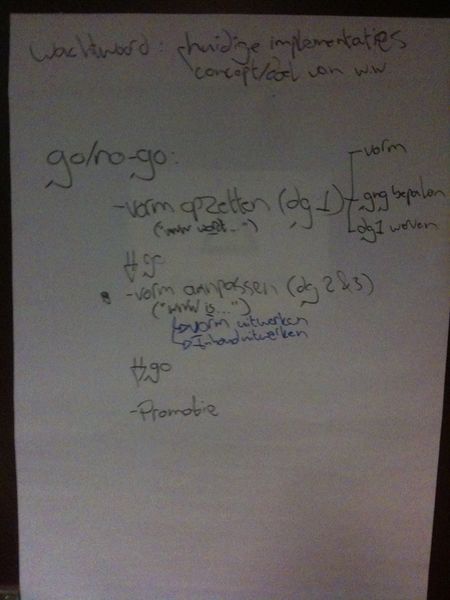 wachtwoord: huidige implementaties
concept/doel van ww
go/no-go:
-vorm opzetten (dg 1)
vorm
gng bepalen
dg 1 werven
("www wordt...")
go
-vorm aanpassen (dg 2 & 3)
("www is...")
vorm uitwerken
Inhoud uitwerken
go
-Promotie